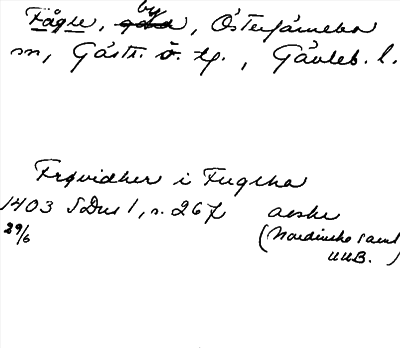 Fågle, by, Österfärnebo
sn, Gästr. ö. tg., Gävleb. l.
Frøvidher i Fuglha
1403 SDns 1, s. 267 avskr
29/6 (Nordinska saml
UUB.)